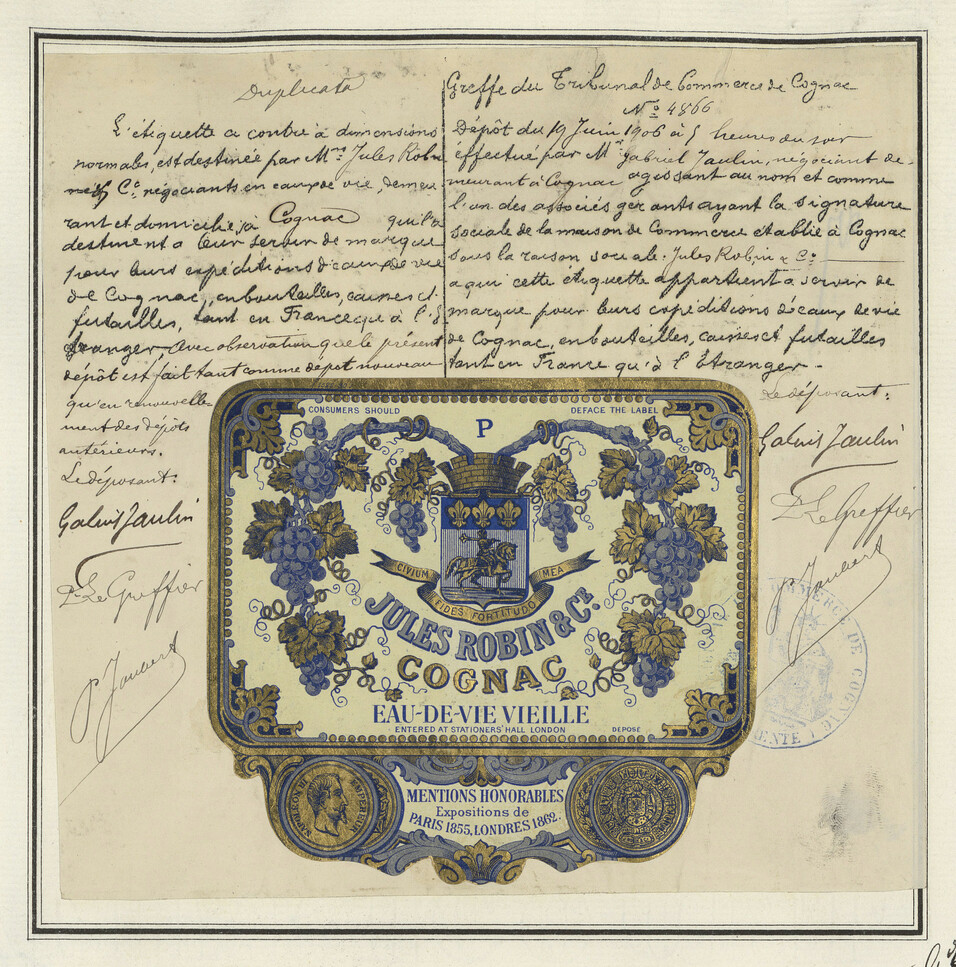 Duplicata
L'étiquette ci contre à dimensions
normales, est destinée par Mrs Jules Robin
& Ce négociants en eaux de vie, demeu
rant et domiciliés à Cognac qui la
destinent a leur servir de marque
pour leurs expéditions d'eaux de vie
de Cognac, en bouteilles, caisses et
futailles, tant en France qu'à l'É
tranger, avec observation que le présent
dépôt est fait tant comme dépôt nouveau
qu'en renouvelle-
ment des dépôts
antérieurs.
Le déposant:
Gabriel Jaulin
Le Greffier
P Jaubert
Greffe du Tribunal de Commerce de Cognac
No 4866
Dépôt du 19 Juin 1906 à 5 heures du soir
éffectué par Mr Gabriel Jaulin, négociant de-
meurant à Cognac agissant au nom et comme
l'un des associés gérants ayant la signature
sociale de la maison de Commerce établie à Cognac
sous la raison sociale: Jules Robin & Ce
a qui cette étiquette appartient a servir de
marque pour leurs expéditions d'eaux de vie
de Cognac, en bouteilles, caisses et futailles
tant en France qu'à l'Étranger -
Le déposant:
Gabriel Jaulin
Le Greffier
P Jaubert
COMMERCE DE COGNAC
CONSUMERS SHOULD DEFACE THE LABEL
P
CIVIUM MEA
FIDES FORTITUDO
JULES ROBIN & CE
COGNAC
EAU-DE-VIE VIEILLE
ENTERED AT STATIONERS' HALL LONDON DEPOSE
NAPOLEON III EMPEREUR
MENTIONS HONORABLES
Expositions de
PARIS 1855, LONDRES 1862.